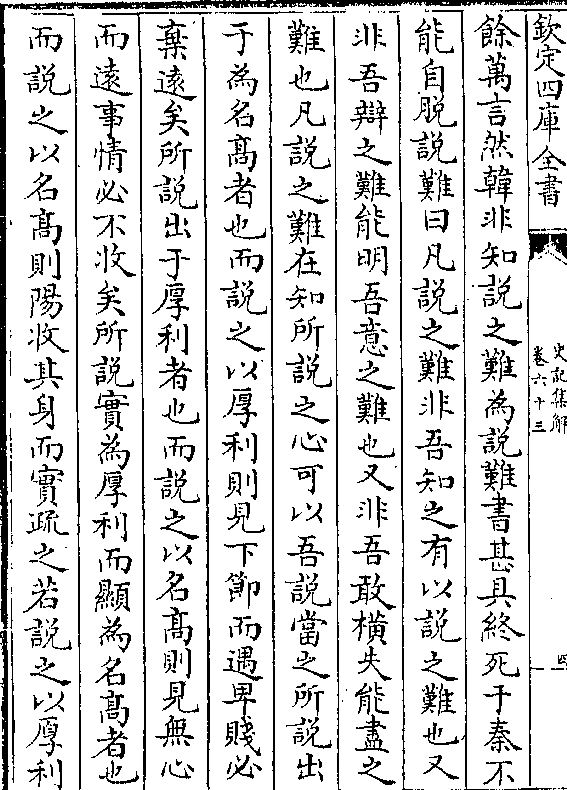 欽定四庫全書
史記集解
卷六十三
四
餘萬言然韓非知說之難為說難書甚具終死于秦不
能自脫說難曰凡說之難非吾知之有以說之難也又
非吾辯之難能明吾意之難也又非吾敢橫失能盡之
難也凡說之難在知所說之心可以吾說當之所說出
于為名髙者也而說之以厚利則見下節而遇卑賤必
棄遠矣所說出于厚利者也而說之以名髙則見無心
而遠事情必不收矣所說實為厚利而顯為名髙者也
而說之以名髙則陽收其身而實疏之若說之以厚利